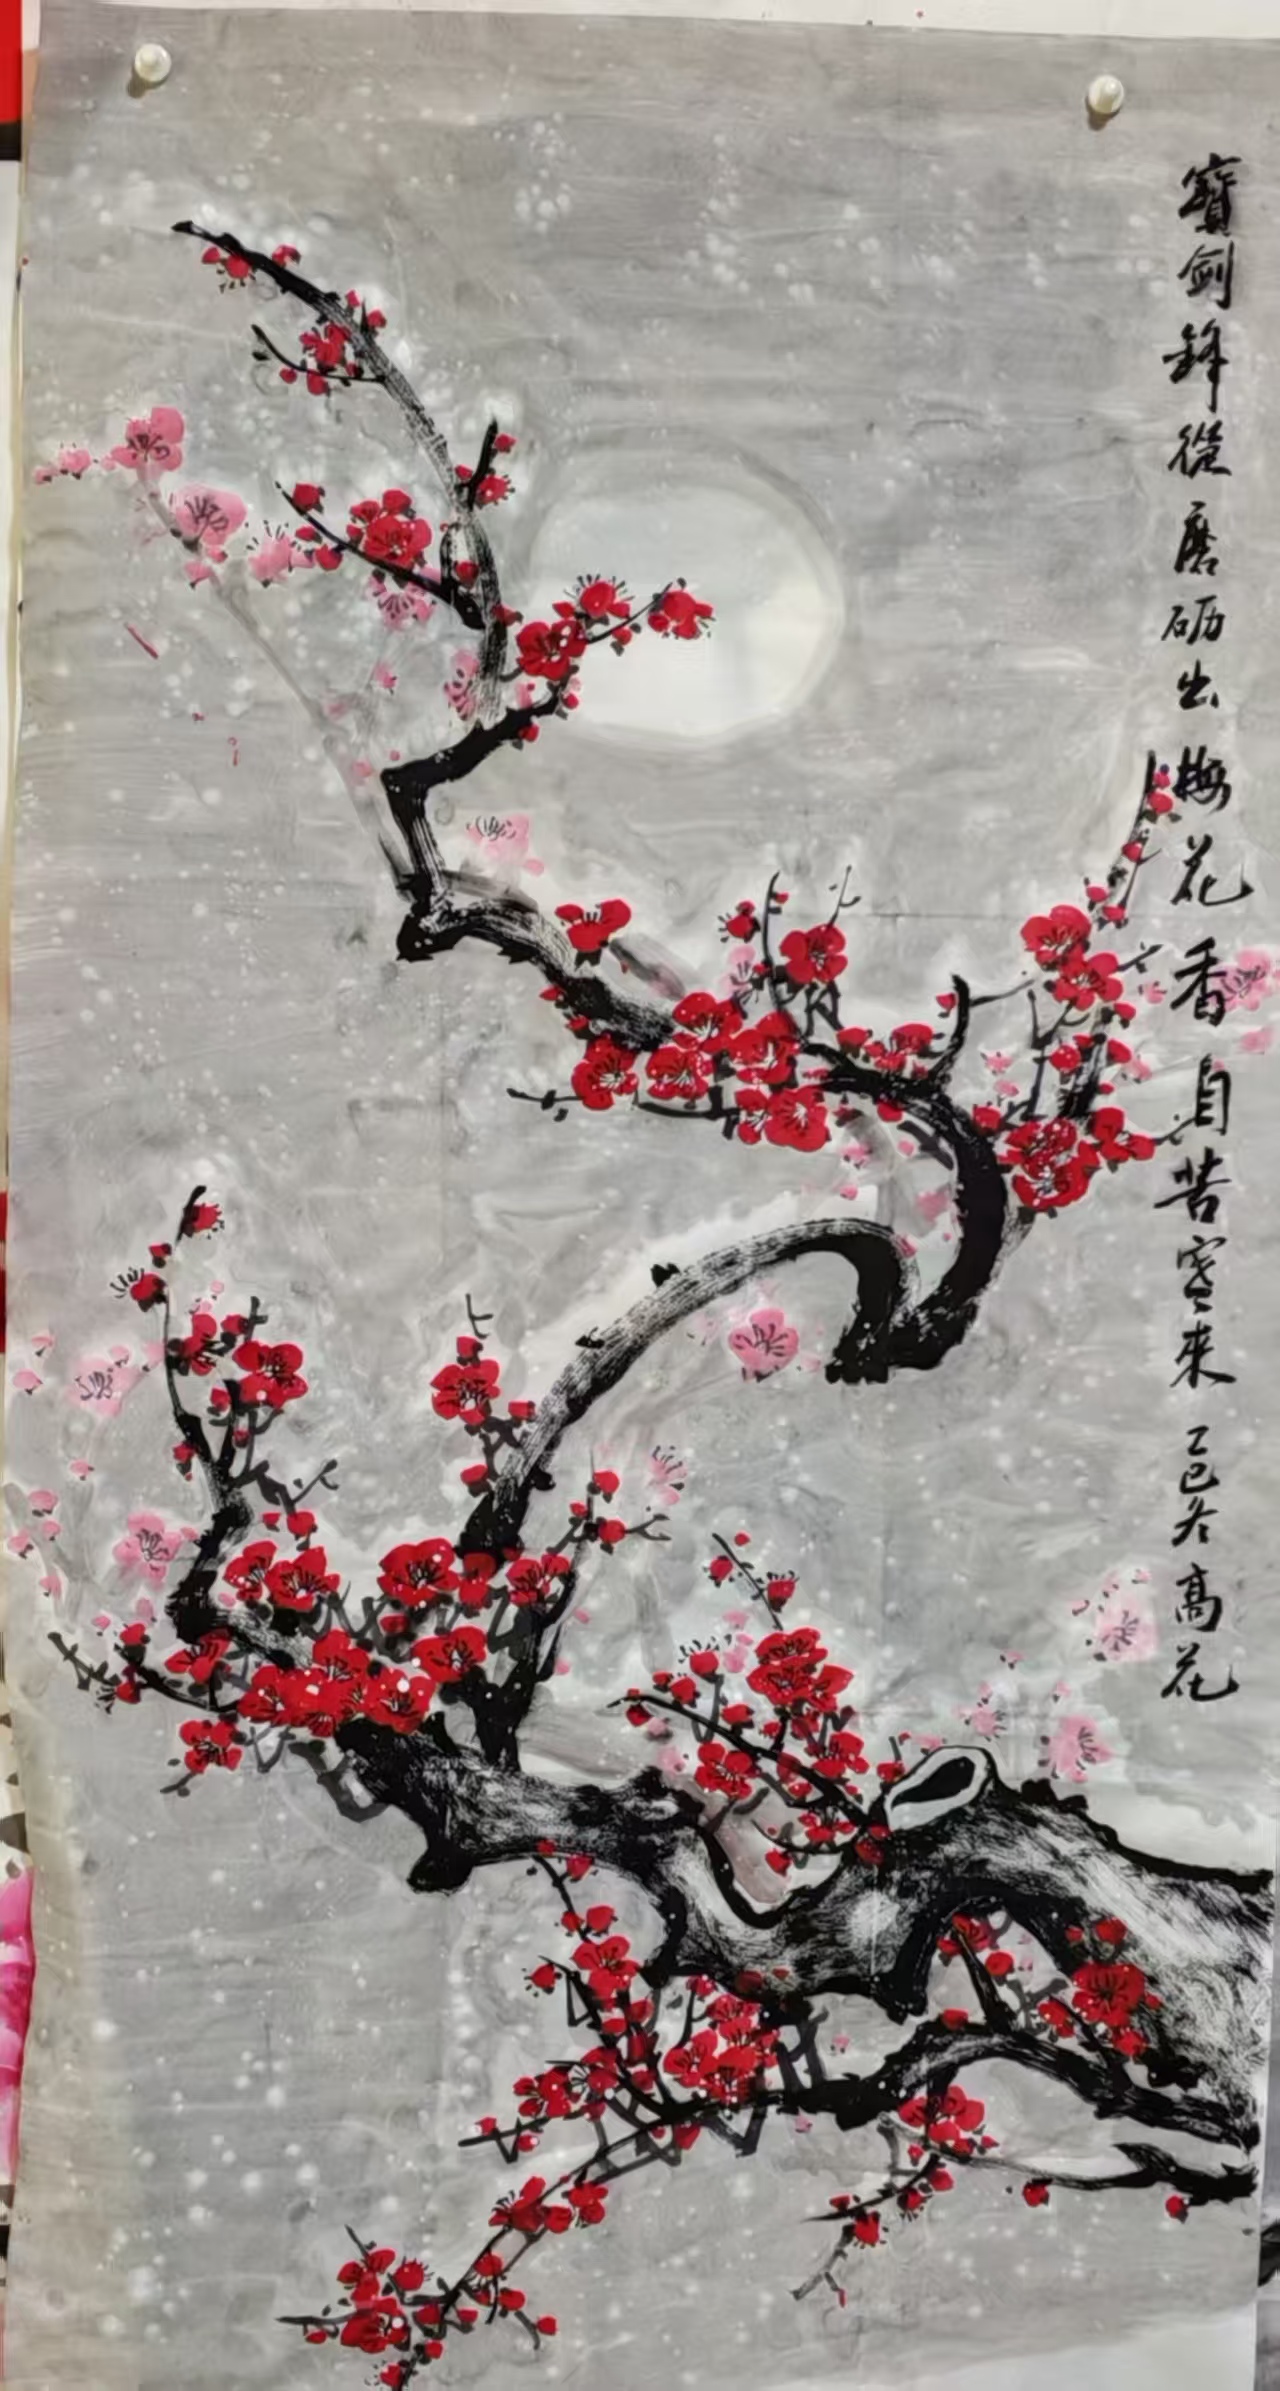 寶劍鋒從磨砺出梅花香自苦寒来乙巳冬高花